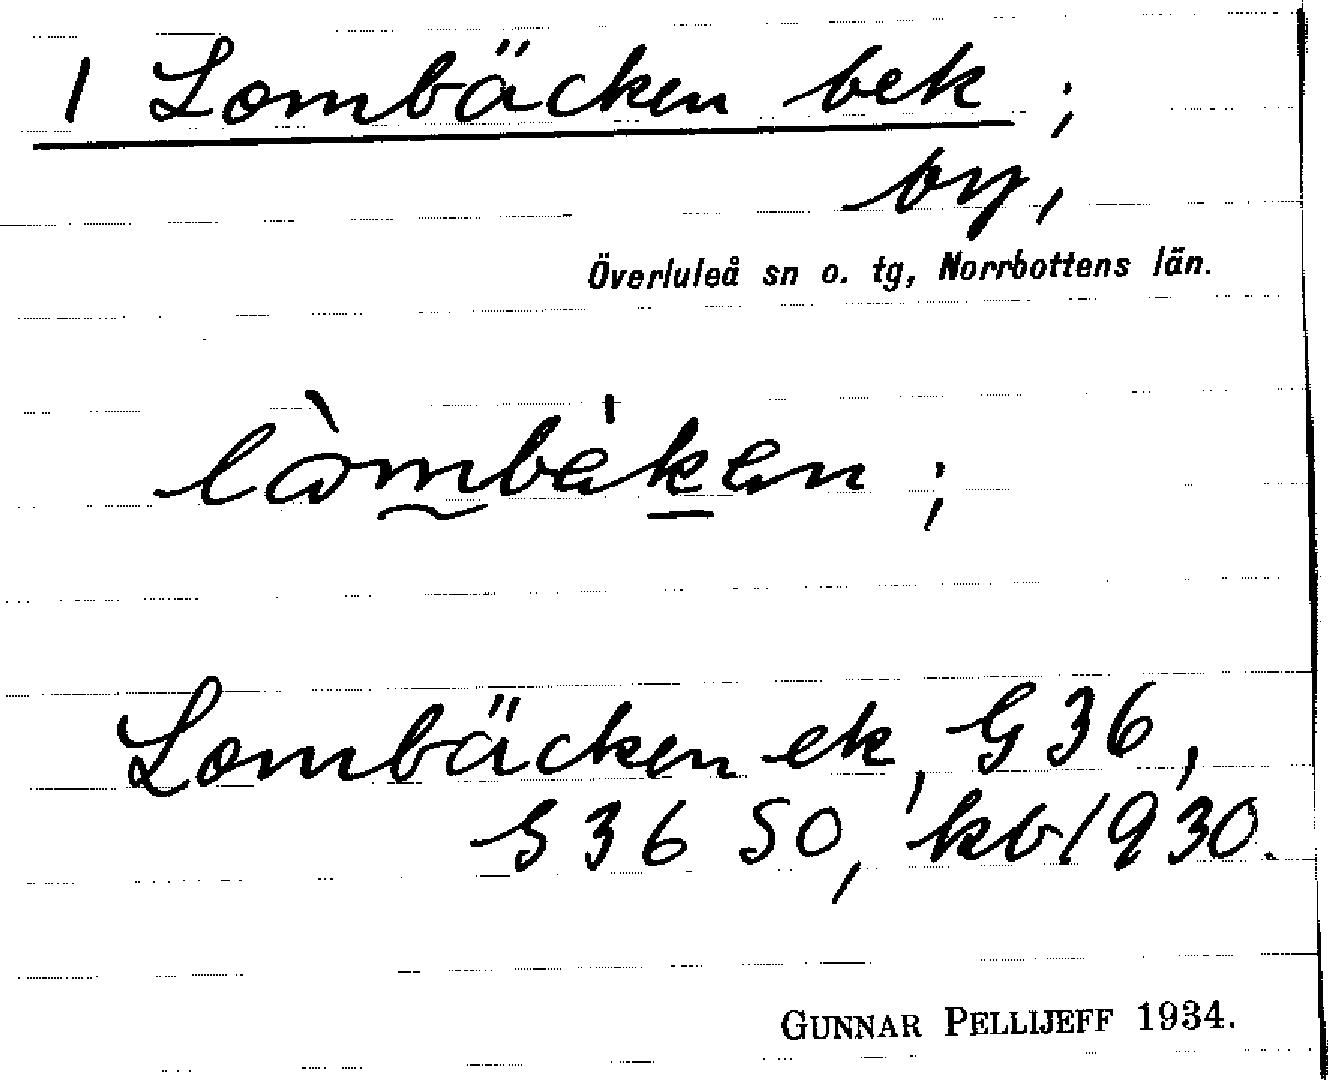 1 Lombäcken bek ;
by,
Överluleå sn o. tg, Norrbottens län.
lòmbèken ;
Lombäcken ek, G 36,
G 36 SO, kb 1930.
GUNNAR PELLIJEFF 1934.